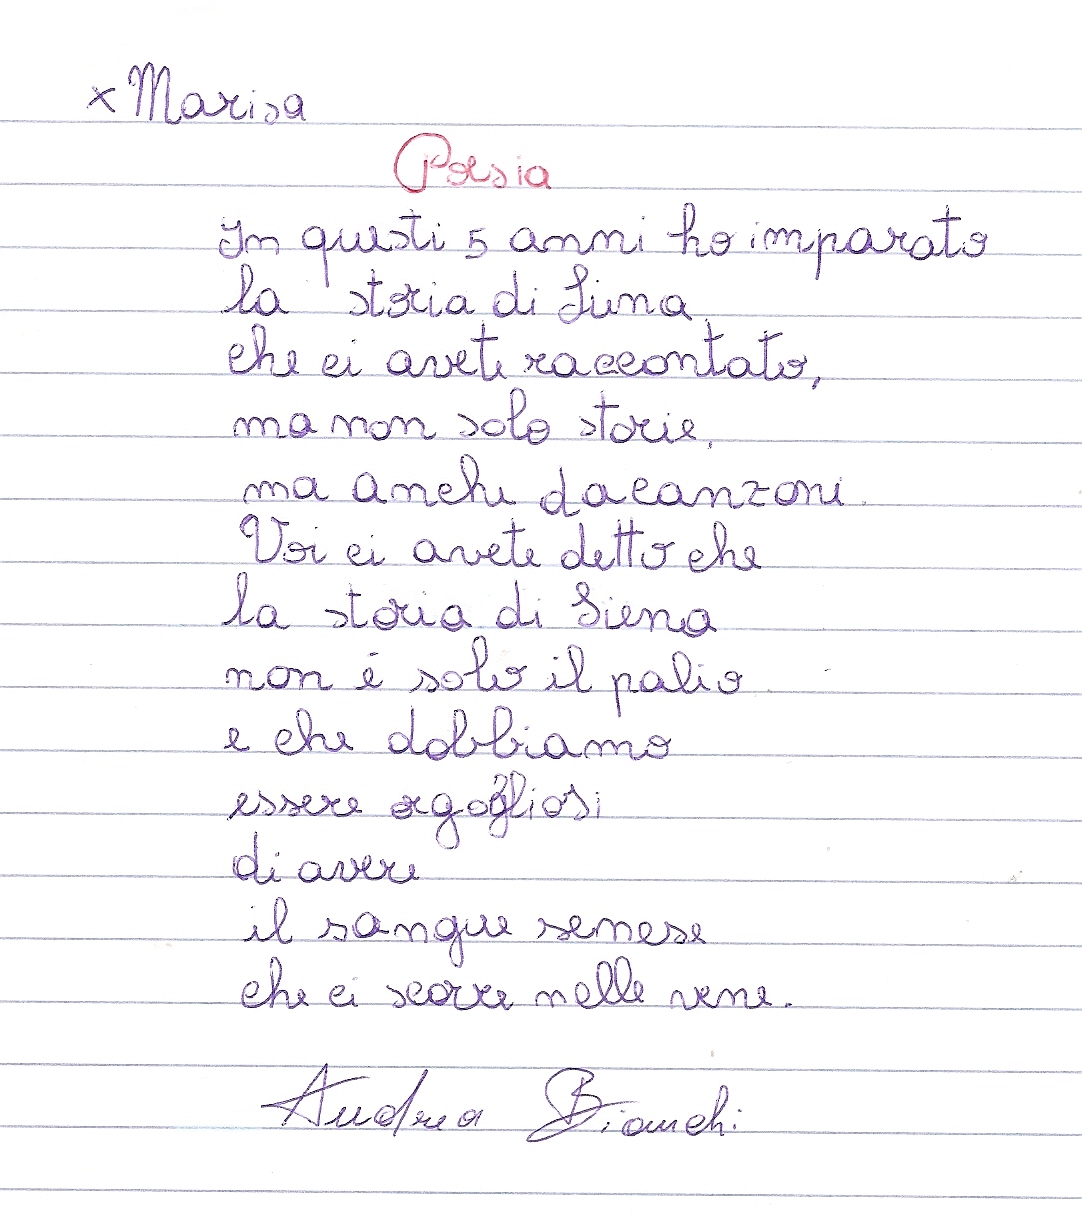 x Marisa
Poesia
In questi 5 anni ho imparato
la storia di Siena
che ci avete raccontato,
ma non solo storie,
ma anche da canzoni.
Voi ci avete detto che
la storia di Siena
non è solo il palio
e che dobbiamo
essere orgogliosi
di avere
il sangue senese
che ci scorre nelle vene.
Andrea Bianchi